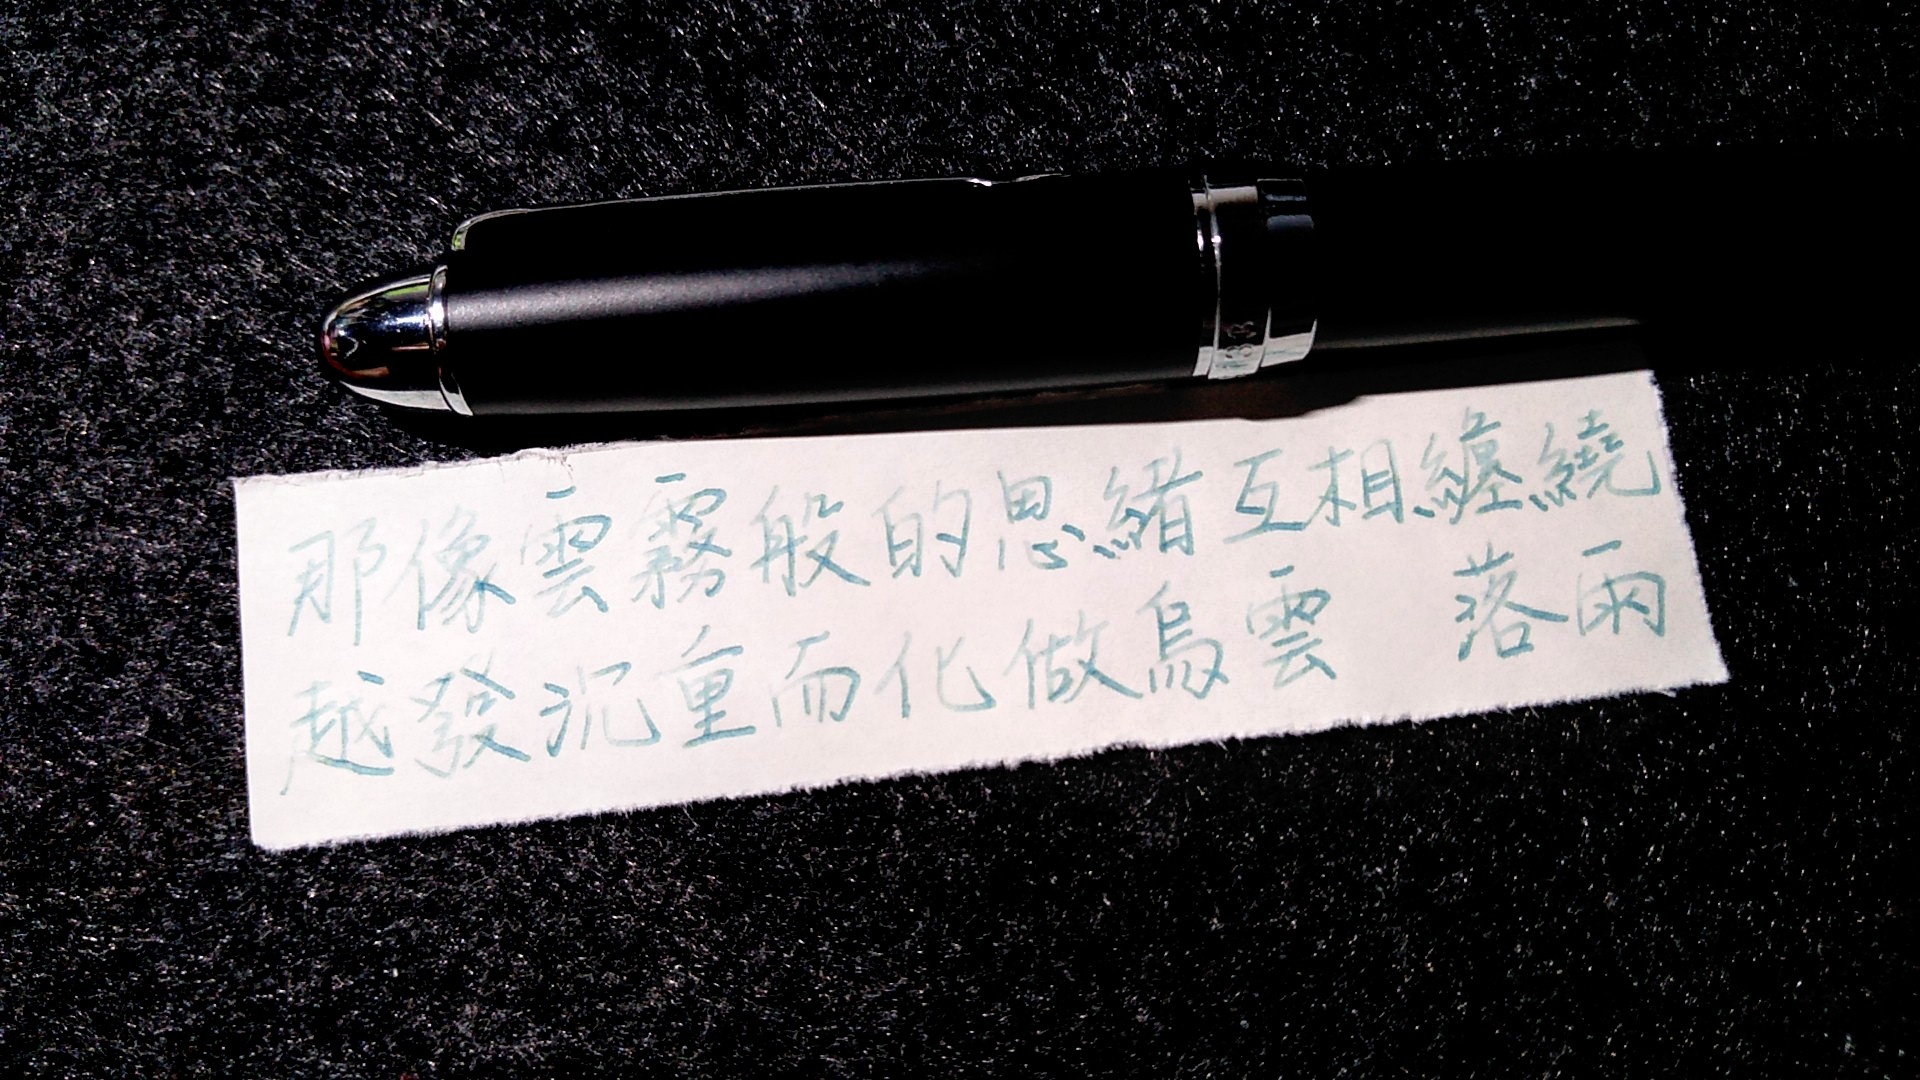 那像雲霧般的思緒互相纏繞
越發沉重而化做烏雲　落雨